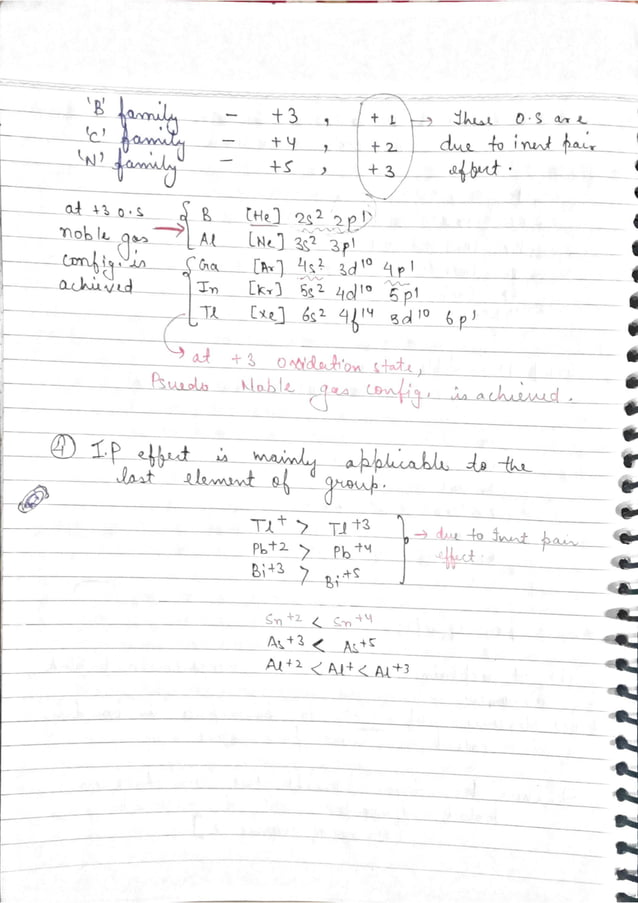 'B' family – +3 , +1 → These O.S are
'C' family – +4 , +2 due to inert pair
'N' family – +5 , +3 effect.
at +3 O.S
noble gas
config. is
achieved
B [He] 2s² 2p¹
Al [Ne] 3s² 3p¹
Ga [Ar] 4s² 3d¹⁰ 4p¹
In [Kr] 5s² 4d¹⁰ 5p¹
Tl [Xe] 6s² 4f¹⁴ 5d¹⁰ 6p¹
→ at +3 oxidation state,
Psuedo Noble gas config. is achieved.
④ I.P effect is mainly applicable to the
last element of group.
Tl⁺ > Tl⁺³
Pb⁺² > Pb⁺⁴
Bi⁺³ > Bi⁺⁵
→ due to Inert pair
effect.
Sn⁺² < Sn⁺⁴
As⁺³ < As⁺⁵
Al⁺² < Al⁺ < Al⁺³